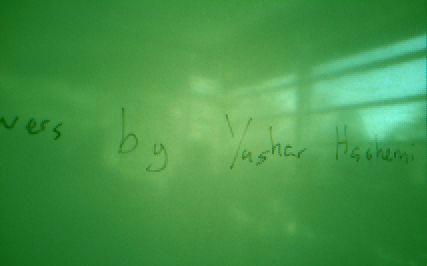 vers by Yashar Hashemi